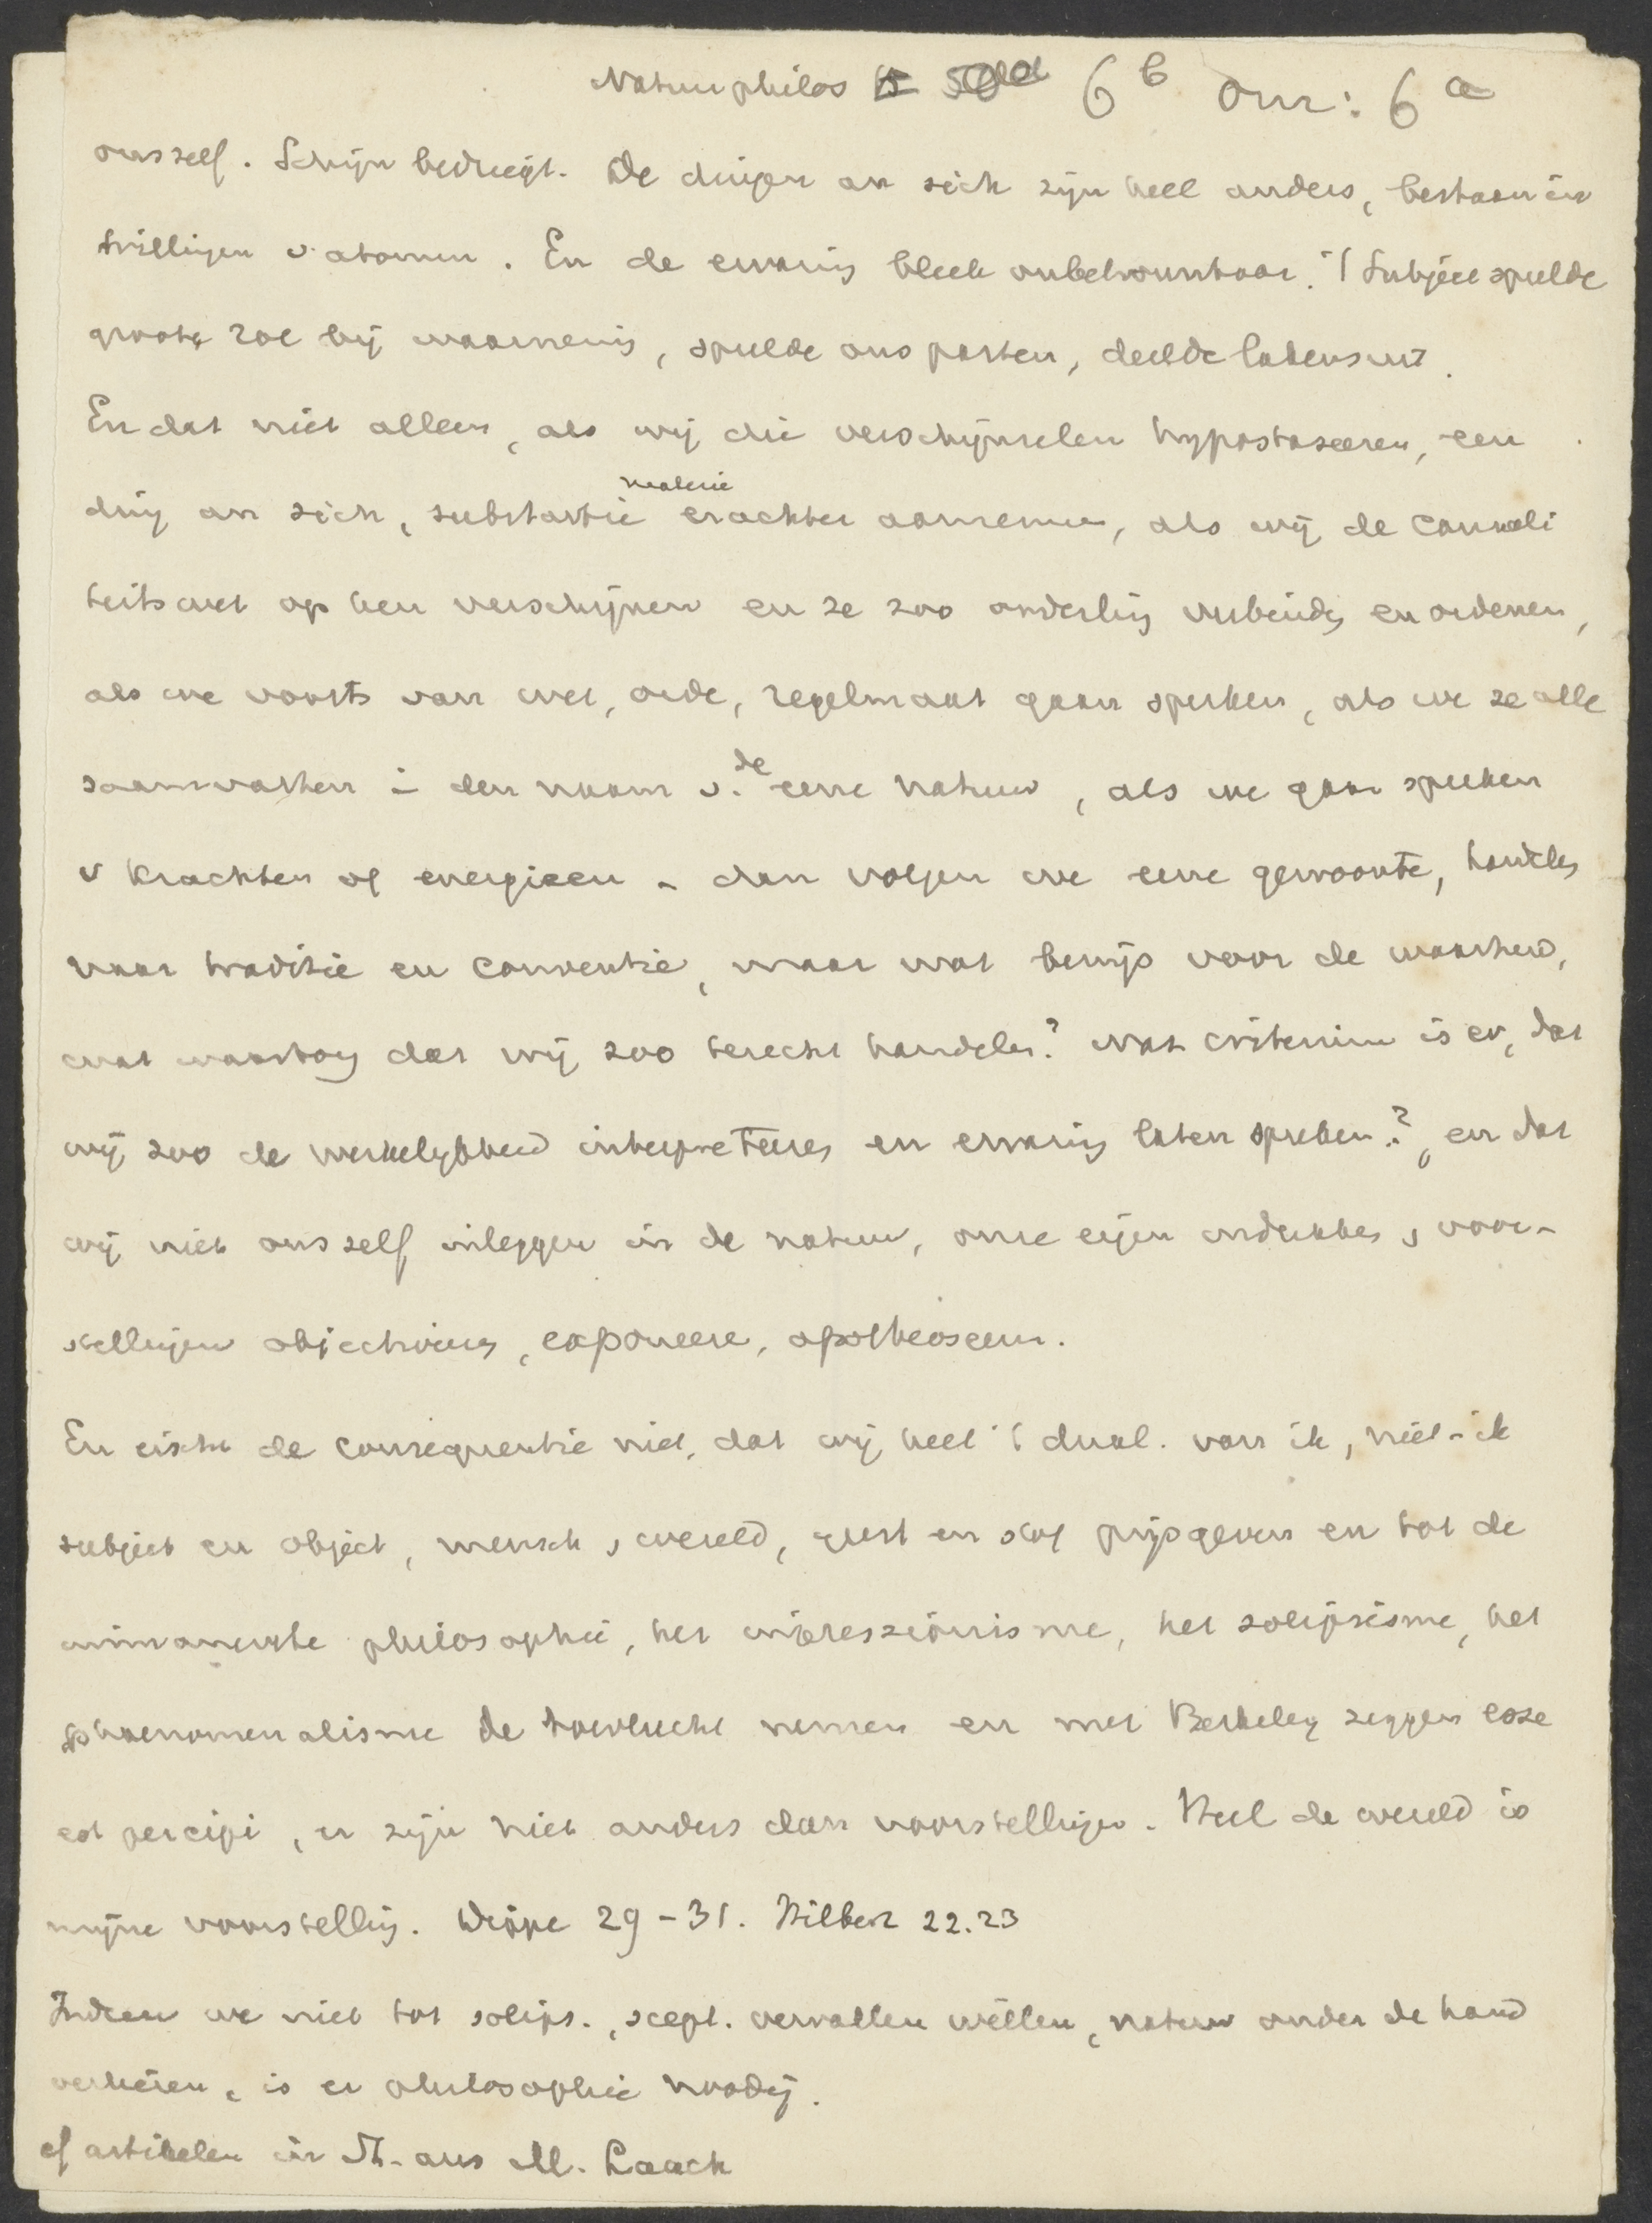 Natuurphilos 6 b our: 6 a
ons zelf. Schijn bedriegt. De dingen an sich zijn heel anders, bestaan in
trillingen v. atomen. En de ervaring bleek onbetrouwbaar. 't Subject speelde
groote rol bij waarneming, speelde ons parten, deelde lakens uit.
En dat niet alleen, als wij die verschijnselen hypostaseeren, een
ding an sich, substantie materie erachter aannemen, als wij de causali
teitswet op hen verschijnen en ze zoo onderling verbinden en ordenen,
als we voorts van wet, orde, regelmaat gaan spreken, als we ze alle
saamvatten i den naam v. de eene natuur, als we gaan spreken
v krachten of energieen - dan volgen we eene gewoonte, handelen
naar traditie en conventie, maar wat bewijs voor de waarheid,
wat waarborg dat wij zoo terecht handelen? Wat criterium is er, dat
wij zoo de werkelijkheid interpreteeren en ervaring laten spreken?, en dat
wij niet ons zelf inleggen in de natuur, onze eigen indrukken, voor-
stellingen objectiveeren, exponeere, apotheoseeren.
En eischt de consequentie niet, dat wij heel 't dual. van ik, niet-ik
subject en object, mensch, wereld, geest en stof prijsgeven en tot de
immanente philosophie, het impressionisme, het solipsisme, het
phaenomenalisme de toevlucht nemen en met Berkeley zeggen esse
est percipi, er zijn niet anders dan voorstellingen. Heel de wereld is
mijne voorstelling. Wröpe 29-31. Hilbert 22.23
Indien we niet tot solips., scept. vervallen willen, natuur onder de hand
verliezen, is er philosophie noodig.
cf artikelen in St. aus M. Laach